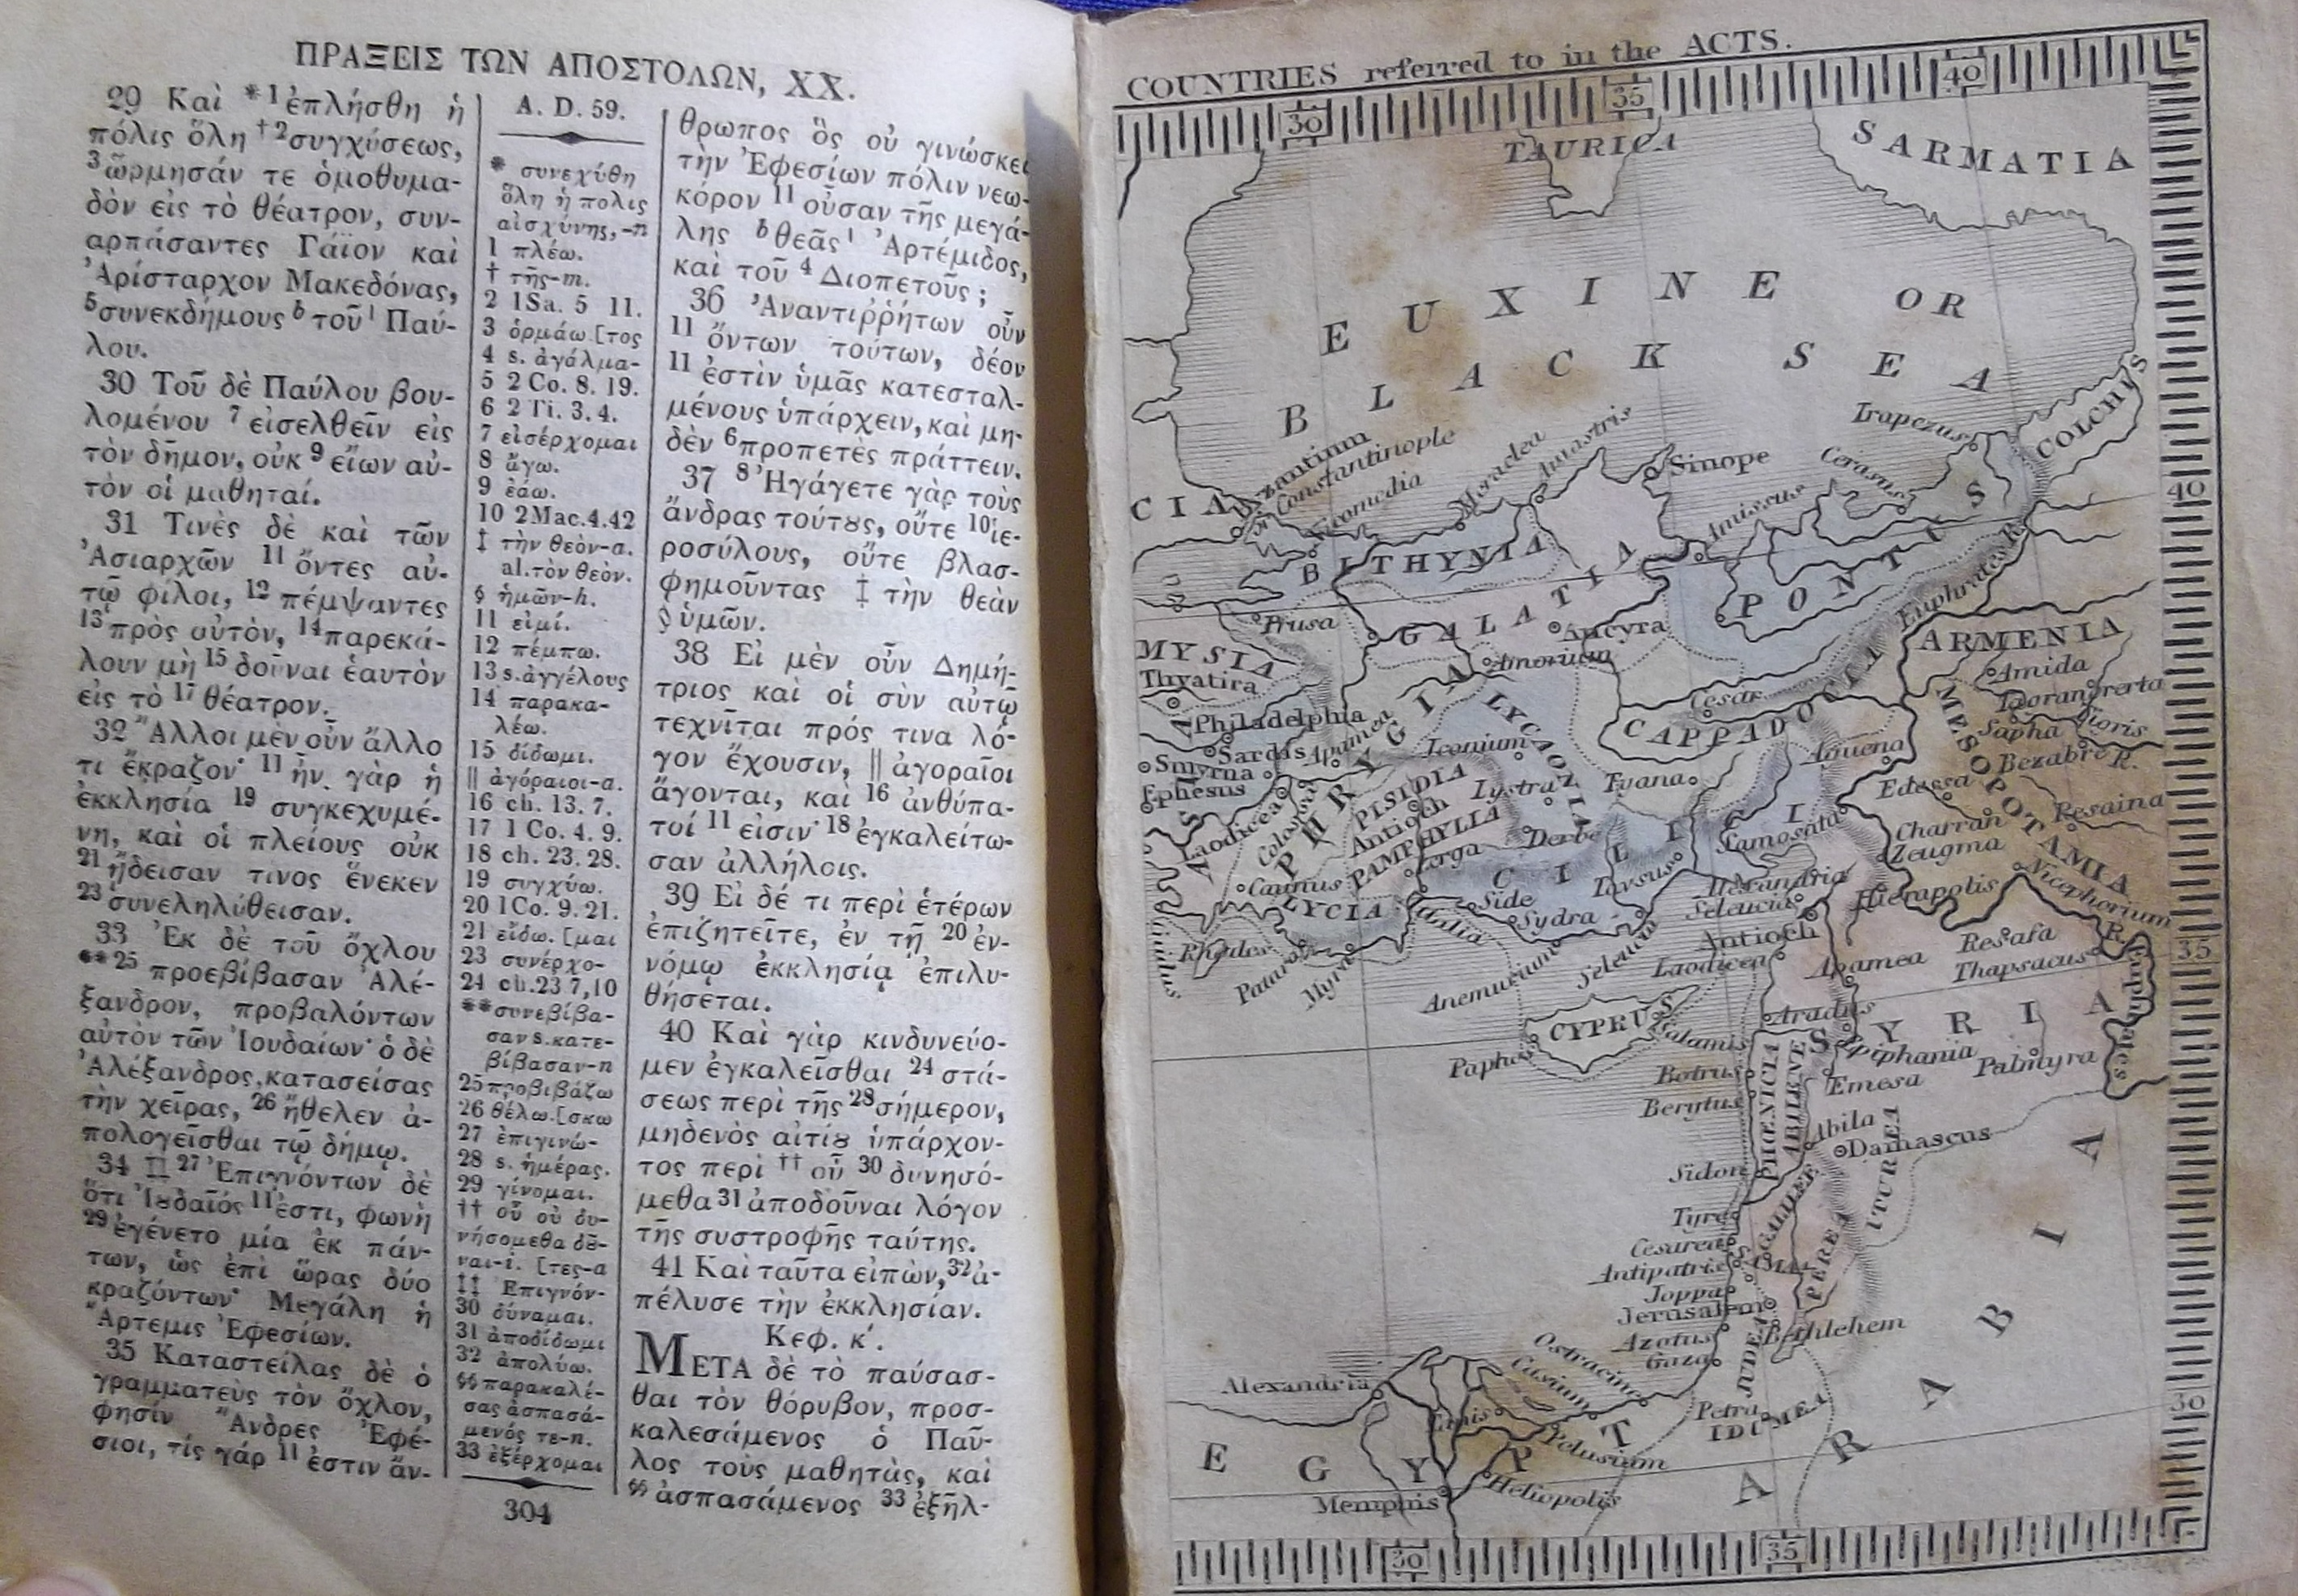 ΠΡΑΞΕΙΣ ΤΩΝ ΑΠΟΣΤΟΛΩΝ, XX.
29 Καὶ *1 ἐπλήσθη ἡ
πόλις ὅλη †2 συγχύσεως,
3 ὥρμησάν τε ὁμοθυμα-
δὸν εἰς τὸ θέατρον, συν-
αρπάσαντες Γάϊον καὶ
Ἀρίσταρχον Μακεδόνας,
5 συνεκδήμους b τοῦ Παύ-
λου.
30 Τοῦ δὲ Παύλου βου-
λομένου 7 εἰσελθεῖν εἰς
τὸν δῆμον, οὐκ 9 εἴων αὐ-
τὸν οἱ μαθηταί.
31 Τινὲς δὲ καὶ τῶν
Ἀσιαρχῶν 11 ὄντες αὐ-
τῷ φίλοι, 12 πέμψαντες
13 πρὸς αὐτὸν, 14 παρεκά-
λουν μὴ 15 δοῦναι ἑαυτὸν
εἰς τὸ 17 θέατρον.
32 Ἄλλοι μὲν οὖν ἄλλο
τι ἔκραζον· 11 ἦν γὰρ ἡ
ἐκκλησία 19 συγκεχυμέ-
νη, καὶ οἱ πλείους οὐκ
21 ᾔδεισαν τινος ἕνεκεν
23 συνεληλύθεισαν.
33 Ἐκ δὲ τοῦ ὄχλου
**25 προεβίβασαν Ἀλέ-
ξανδρον, προβαλόντων
αὐτὸν τῶν Ἰουδαίων· ὁ δὲ
Ἀλέξανδρος, κατασείσας
τὴν χεῖρας, 26 ἤθελεν ἀ-
πολογεῖσθαι τῷ δήμῳ.
34 ‡‡ 27 Ἐπιγνόντων δὲ
ὅτι Ἰȣδαῖός 11 ἐστι, φωνὴ
29 ἐγένετο μία ἐκ πάν-
των, ὡς ἐπὶ ὥρας δύο
κραζόντων· Μεγάλη ἡ
Ἄρτεμις Ἐφεσίων.
35 Καταστείλας δὲ ὁ
γραμματεὺς τὸν ὄχλον,
φησίν· Ἄνδρες Ἐφέ-
σιοι, τίς γάρ 11 ἐστιν ἄν-
A. D. 59.
* συνεχύθη
ὅλη ἡ πολις
αἰσχύνης,-n
1 πλέω.
† τῆς-m.
2 1Sa. 5 11.
3 ὁρμάω. [τος
4 s. ἀγάλμα-
5 2 Co. 8. 19.
6 2 Ti. 3. 4.
7 εἰσέρχομαι
8 ἄγω.
9 ἐάω.
10 2Mac.4.42
‡ τὴν θεὸν-a.
al. τὸν θεόν.
§ ἡμῶν-h.
11 εἰμί.
12 πέμπω.
13 s. ἀγγέλους
14 παρακα-
λέω.
15 δίδωμι.
|| ἀγόραιοι-a.
16 ch. 13. 7.
17 1 Co. 4. 9.
18 ch. 23. 28.
19 συγχύω.
20 1Co. 9. 21.
21 εἴδω. [μαι
23 συνέρχο-
24 ch.23 7,10
** συνεβίβα-
σαν s. κατε-
βίβασαν-n
25 προβιβάζω
26 θέλω. [σκω
27 ἐπιγινώ-
28 s. ἡμέρας.
29 γίνομαι.
†† οὗ οὐ δυ-
νήσομεθα δῦ-
ναι-i. [τες-a
‡‡ Ἐπιγνόν-
30 δύναμαι.
31 ἀποδίδωμι
32 ἀπολύω.
§§ παρακαλέ-
σας ἀσπασά-
μενός τε-n.
33 ἐξέρχομαι
304
θρωπος ὃς οὐ γινώσκει
τὴν Ἐφεσίων πόλιν νεω-
κόρον 11 οὖσαν τῆς μεγά-
λης b θεᾶς Ἀρτέμιδος,
καὶ τοῦ 4 Διοπετοῦς;
36 Ἀναντιῤῥήτων οὖν
11 ὄντων τούτων, δέον
11 ἐστὶν ὑμᾶς κατεσταλ-
μένους ὑπάρχειν, καὶ μη-
δὲν 6 προπετὲς πράττειν.
37 8 Ἠγάγετε γὰρ τοὺς
ἄνδρας τούτȣς, οὔτε 10 ἱε-
ροσύλους, οὔτε βλασ-
φημοῦντας ‡ τὴν θεὰν
§ ὑμῶν.
38 Εἰ μὲν οὖν Δημή-
τριος καὶ οἱ σὺν αὐτῷ
τεχνῖται πρός τινα λό-
γον ἔχουσιν, || ἀγοραῖοι
ἄγονται, καὶ 16 ἀνθύπα-
τοί 11 εἰσιν· 18 ἐγκαλείτω-
σαν ἀλλήλοις.
39 Εἰ δέ τι περὶ ἑτέρων
ἐπιζητεῖτε, ἐν τῇ 20 ἐν-
νόμῳ ἐκκλησίᾳ ἐπιλυ-
θήσεται.
40 Καὶ γὰρ κινδυνεύο-
μεν ἐγκαλεῖσθαι 24 στά-
σεως περὶ τῆς 28 σήμερον,
μηδενὸς αἰτίȣ ὑπάρχον-
τος περὶ †† οὗ 30 δυνησό-
μεθα 31 ἀποδοῦναι λόγον
τῆς συστροφῆς ταύτης.
41 Καὶ ταῦτα εἰπὼν, 32 ἀ-
πέλυσε τὴν ἐκκλησίαν.
Κεφ. κʹ.
ΜΕΤΑ δὲ τὸ παύσασ-
θαι τὸν θόρυβον, προσ-
καλεσάμενος ὁ Παῦ-
λος τοὺς μαθητὰς, καὶ
§§ ἀσπασάμενος 33 ἐξῆλ-
COUNTRIES referred to in the ACTS.
30 35 40
TAURICA
SARMATIA
EUXINE OR
BLACK SEA
COLCHIS
Trapezus
Byzantium
or Constantinople
Nicomedia
Heraclea
Amastris
Sinope
Amissus
Cerasus
CIA
40
BITHYNIA
GALATIA
PONTUS
Euphrates R.
Prusa
Ancyra
ARMENIA
MYSIA
Thyatira
Amorium
Amida
Philadelphia
PHRYGIA
LYCAONIA
Cesar
CAPPADOCIA
MESOPOTAMIA
Sapha
Bezabre
R.
Sardis
Apamea
Iconium
Smyrna
Ephesus
PISIDIA
Antioch
Lystra
Tyana
Edessa
Resaina
Laodicea
PAMPHYLIA
Perga
Derbe
CILICIA
Samosata
Charran
Zeugma
Caunus
LYCIA
Side
Tarsus
Alexandria
Hierapolis
Nicephorium
Attalia
Sydra
Seleucia
Rhodes
Patara
Myra
Anemurium
Seleucia
Antioch
Laodicea
Apamea
Resafa
Thapsacus
35
Euphrates R.
CYPRUS
Aradus
SYRIA
Paphos
Salamis
Epiphania
Palmyra
Botrus
Emesa
Berytus
PHOENICIA
ABILENE
Abila
Damascus
Sidon
Tyre
GALILEE
ITUREA
Cesarea
SAMA
Antipatris
PEREA
Joppa
Jerusalem
Azotus
Bethlehem
Gaza
JUDEA
ARABIA
Ostracine
Casium
Alexandria
Petra
IDUMEA
30
Pelusium
EGYPT
Memphis
Heliopolis
30 35